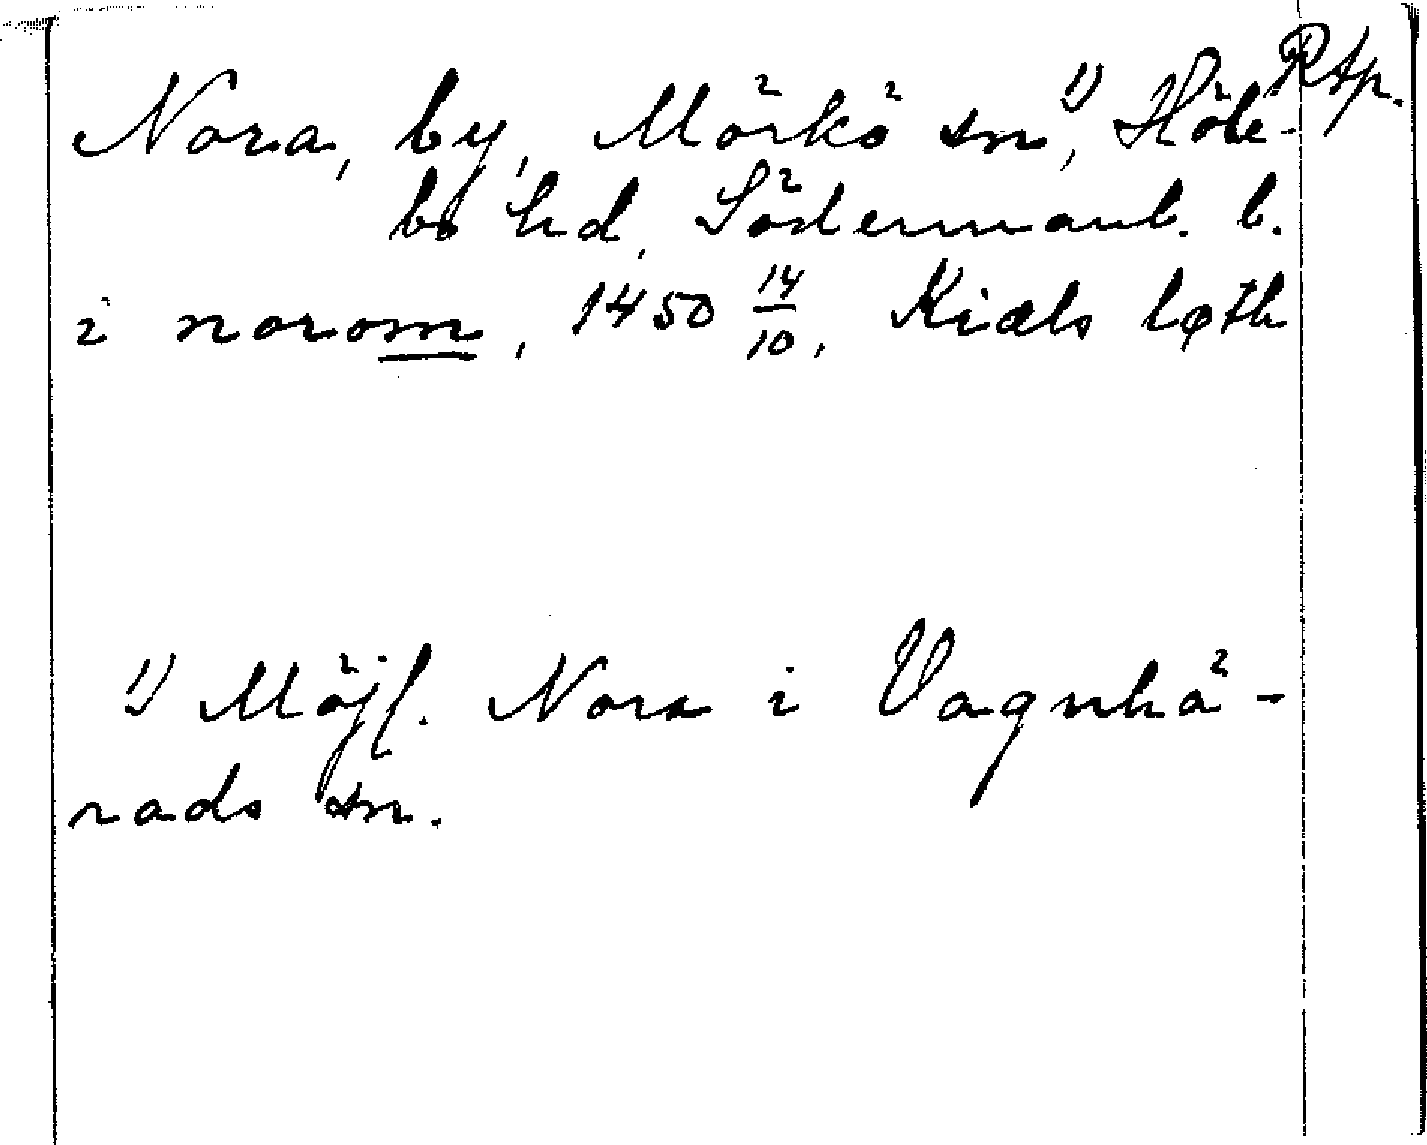 Rtp.
Nora, by, Mörkö sn¹⁾, Höle-
bo hd, Södermanl. l.
i norom, 1450 14/10, Kiæls løth
¹⁾ Möjl. Nora i Vagnhä-
rads sn.